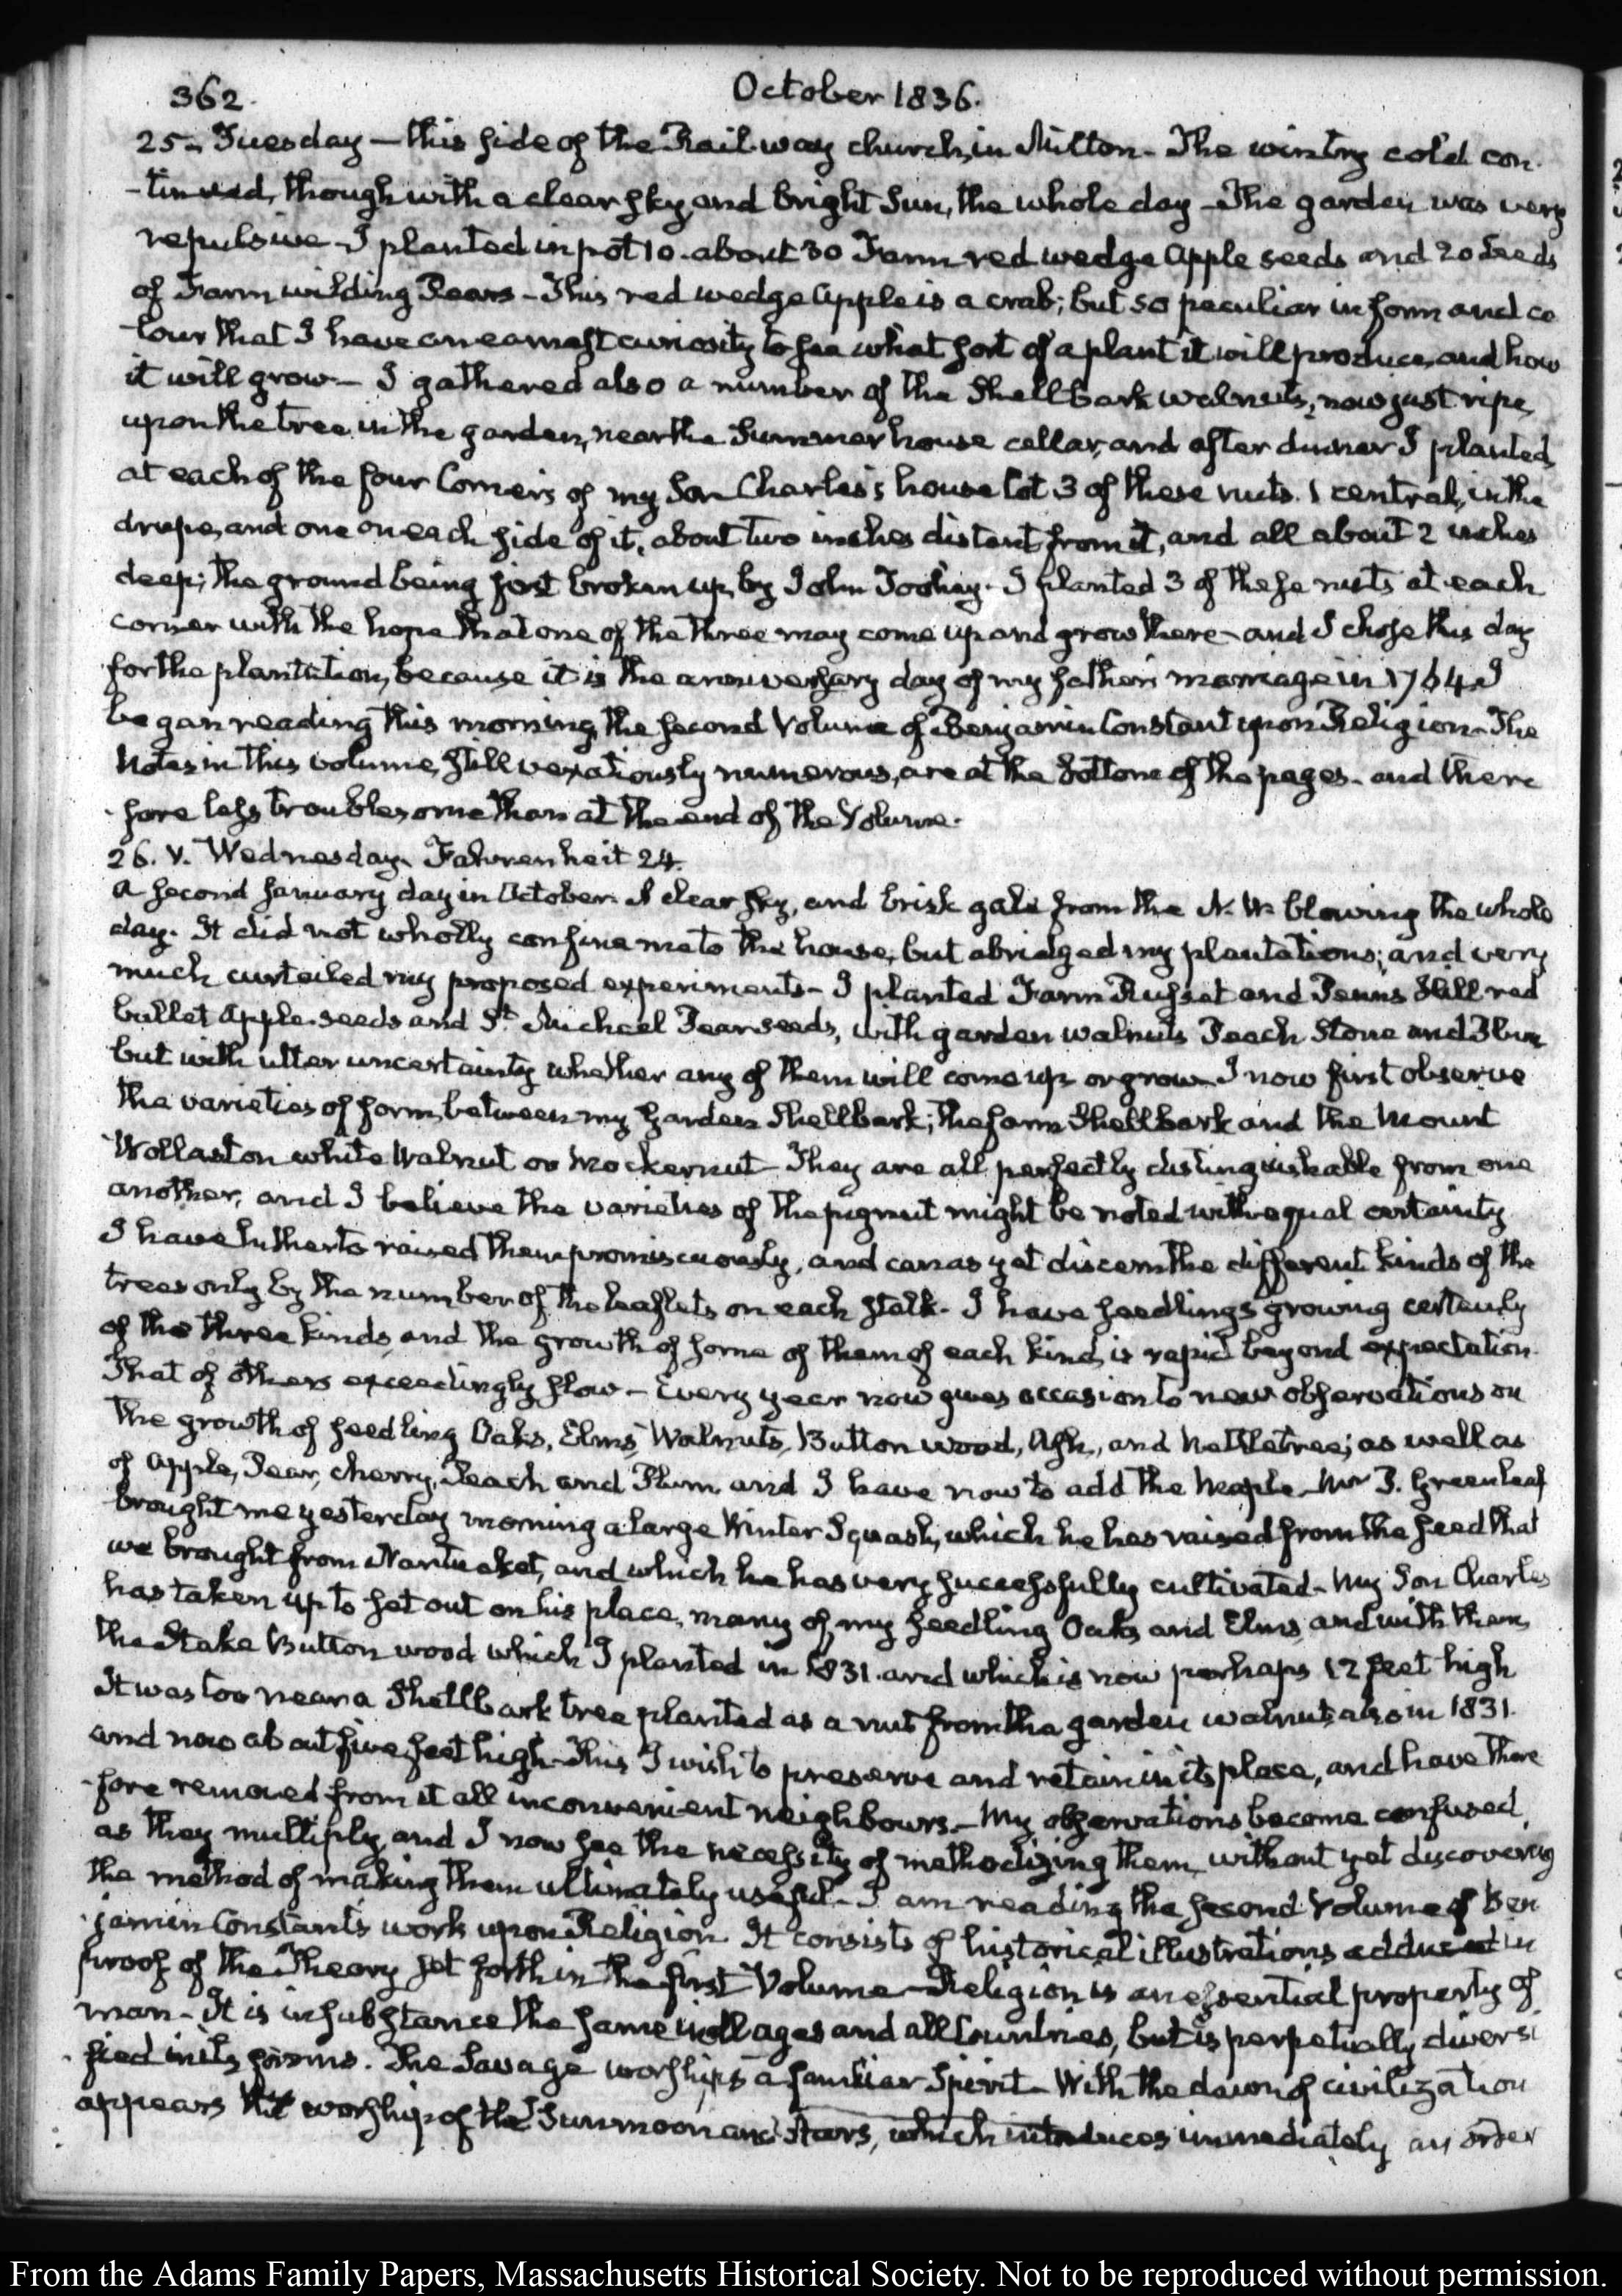 362.
October 1836.
25. Tuesday — this side of the Railway church, in Milton. The wintry cold con-
-tinued, though with a clear sky, and bright Sun, the whole day — The garden was very
repulsive — I planted in pot 10. about 30 Farm red wedge Apple seeds and 20 seeds
of Farm wilding Pears — This red wedge Apple is a crab; but so peculiar in form and co
-lour that I have an earnest curiosity to see what sort of a plant it will produce, and how
it will grow — I gathered also a number of the Shellbark walnuts, now just ripe,
upon the tree in the garden, near the Summer house cellar, and after dinner I planted,
at each of the four Corners of my Son Charles's house lot 3 of these nuts. 1 central, in the
drupe, and one on each side of it, about two inches distant from it, and all about 2 inches
deep; the ground being just broken up, by John Toohay. I planted 3 of these nuts at each
corner with the hope that one of the three may come up and grow there — and I chose this day
for the plantation, because it is the anniversary day of my father's marriage in 1764. I
began reading this morning, the second Volume of Benjamin Constant upon Religion — The
Notes in this volume, still vexatiously numerous, are at the bottom of the pages — and there
-fore less troublesome than at the end of the Volume.
26. V. Wednesday. Fahrenheit 24.
A second January day in October. A clear sky, and brisk gale from the N. W. blowing the whole
day. It did not wholly confine me to the house, but abridged my plantations; and very
much curtailed my proposed experiments — I planted Farm Russet and Penns Hill red
bullet Apple. seeds and St. Michael Pear seeds, with garden walnuts Peach Stone and Plum
but with utter uncertainty whether any of them will come up or grow — I now first observe
the varieties of form, between my garden Shellbark; the farm Shellbark and the Mount
Wollaston white Walnut or Mockernut — They are all perfectly distinguishable from one
another, and I believe the varieties of the pignut might be noted with equal certainty
I have hitherto raised them promiscuously, and can as yet discern the different kinds of the
trees only by the number of the leaflets on each stalk. I have seedlings growing certainly
of the three kinds, and the growth of some of them of each kind, is rapid beyond expectation.
That of others exceedingly slow — Every year now gives occasion to new observations on
the growth of seedling Oaks, Elms, Walnuts, Button wood, Ash, and Nettletree; as well as
of Apple, Pear, Cherry, Peach and Plum. and I have now to add the Maple — Mr T. Greenleaf
brought me yesterday morning a large Winter Squash, which he has raised from the seed that
we brought from Nantucket, and which he has very successfully cultivated — My Son Charles
has taken up to set out on his place, many of my seedling Oaks and Elms, and with them,
the Stake Button wood which I planted in 1831. and which is now perhaps 12 feet high
It was too near a Shellbark tree planted as a nut from the garden walnut, also in 1831.
and now about five feet high — This I wish to preserve and retain in its place, and have there
-fore removed from it all inconvenient neighbours. — My observations become confused,
as they multiply, and I now see the necessity of methodizing them, without yet discovering
the method of making them ultimately useful — I am reading the second Volume of Ben
-jamin Constant's work upon Religion. It consists of historical illustrations adduced in
proof of the Theory set forth in the first Volume — Religion is an essential property of
man — It is in substance the same in all ages and all Countries, but is perpetually diversi
-fied in its forms. The Savage worships a familiar Spirit — With the dawn of civilization
appears the worship of the Sun moon and Stars, which introduces immediately an order
From the Adams Family Papers, Massachusetts Historical Society. Not to be reproduced without permission.